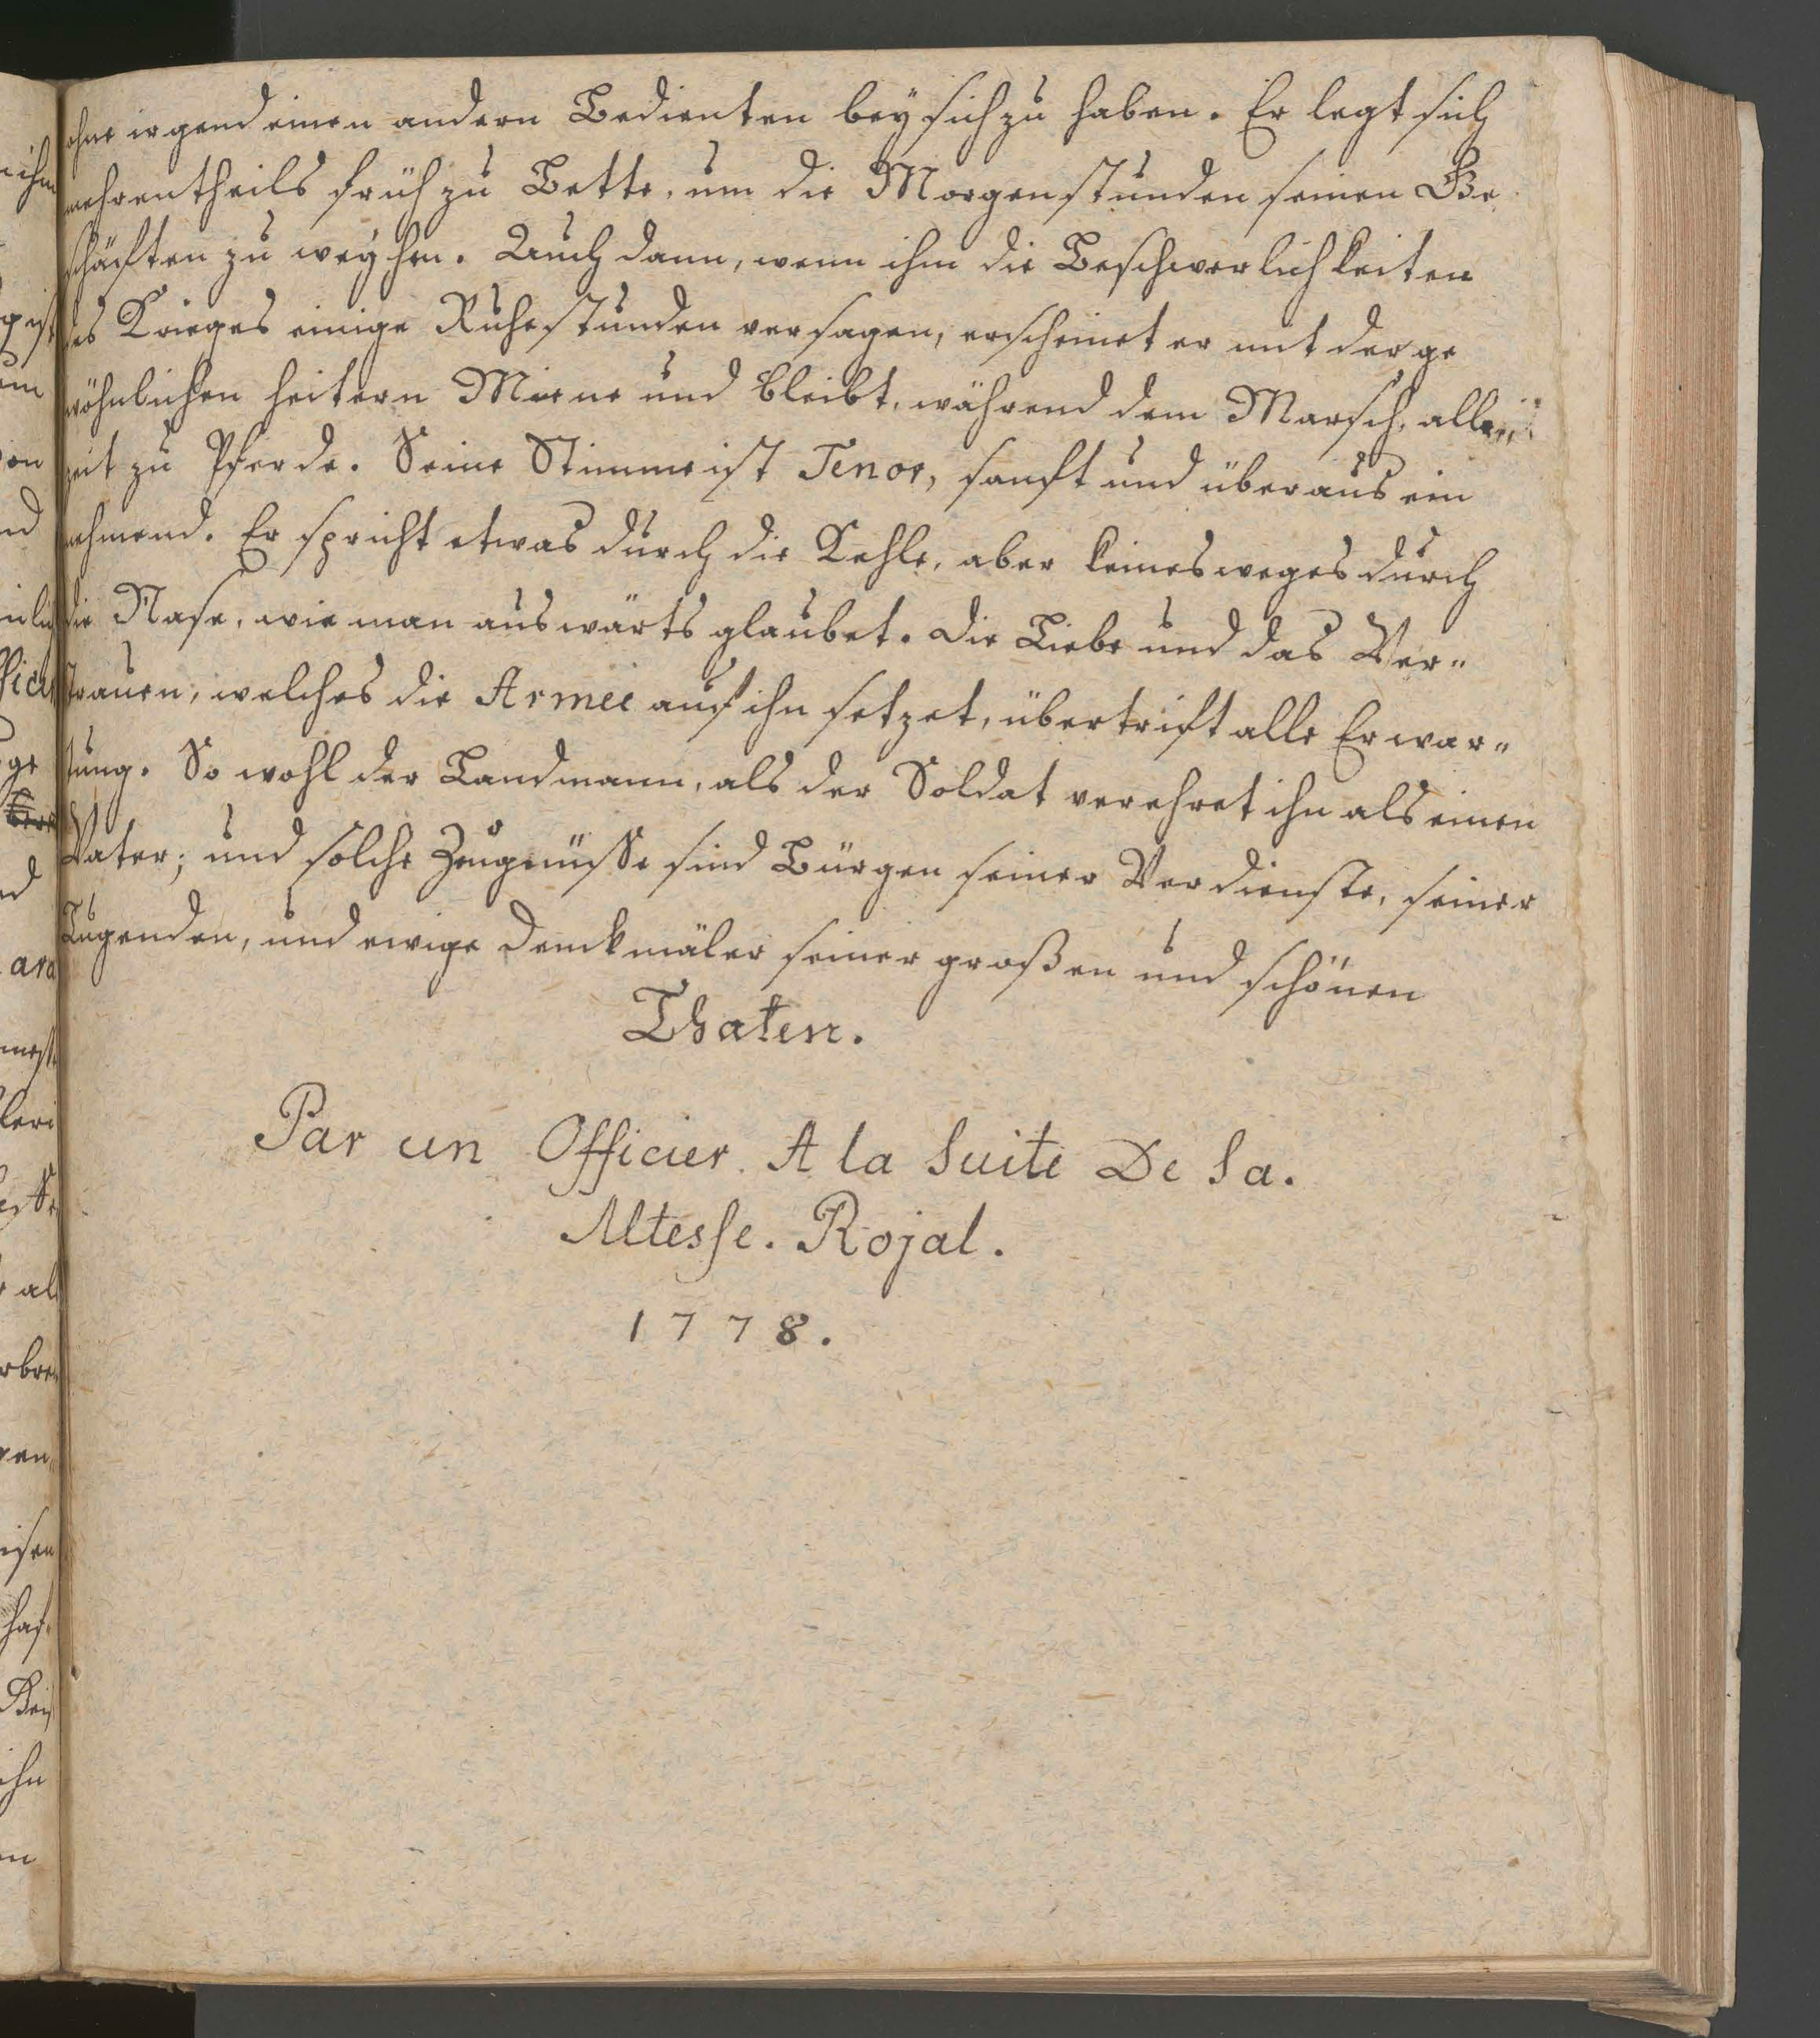 ohne irgend einen andern Bedienten bey sich zu haben. Er legt sich
mehrentheils früh zu Bette, um die Morgenstunden seinen Ge
schäften zu weyhen. Auch dann, wenn ihm die Beschwerlichkeiten
des Krieges einige Ruhestunden versagen, erscheinet er mit der ge
wöhnlichen heitern Miene und bleibt, während dem Marsch, alle„
zeit zu Pferde. Seine Stimme ist Tenor, sanft und überaus ein
nehmend. Er spricht etwas durch die Kehle, aber keinesweges durch
die Nase, wie man auswärts glaubet. Die Liebe und das Ver„
trauen, welches die Armee auf ihn setzet, übertrift alle Erwar„
tung. So wohl der Landmann, als der Soldat verehret ihn als einen
Vater; und solche Zeugnüsse sind Bürgen seiner Verdienste, seiner
Tugenden, und ewige Denckmäler seiner großen und schönen
Thaten.
Par un Officier. A la Suite De Sa.
Altesse. Rojal.
1778.